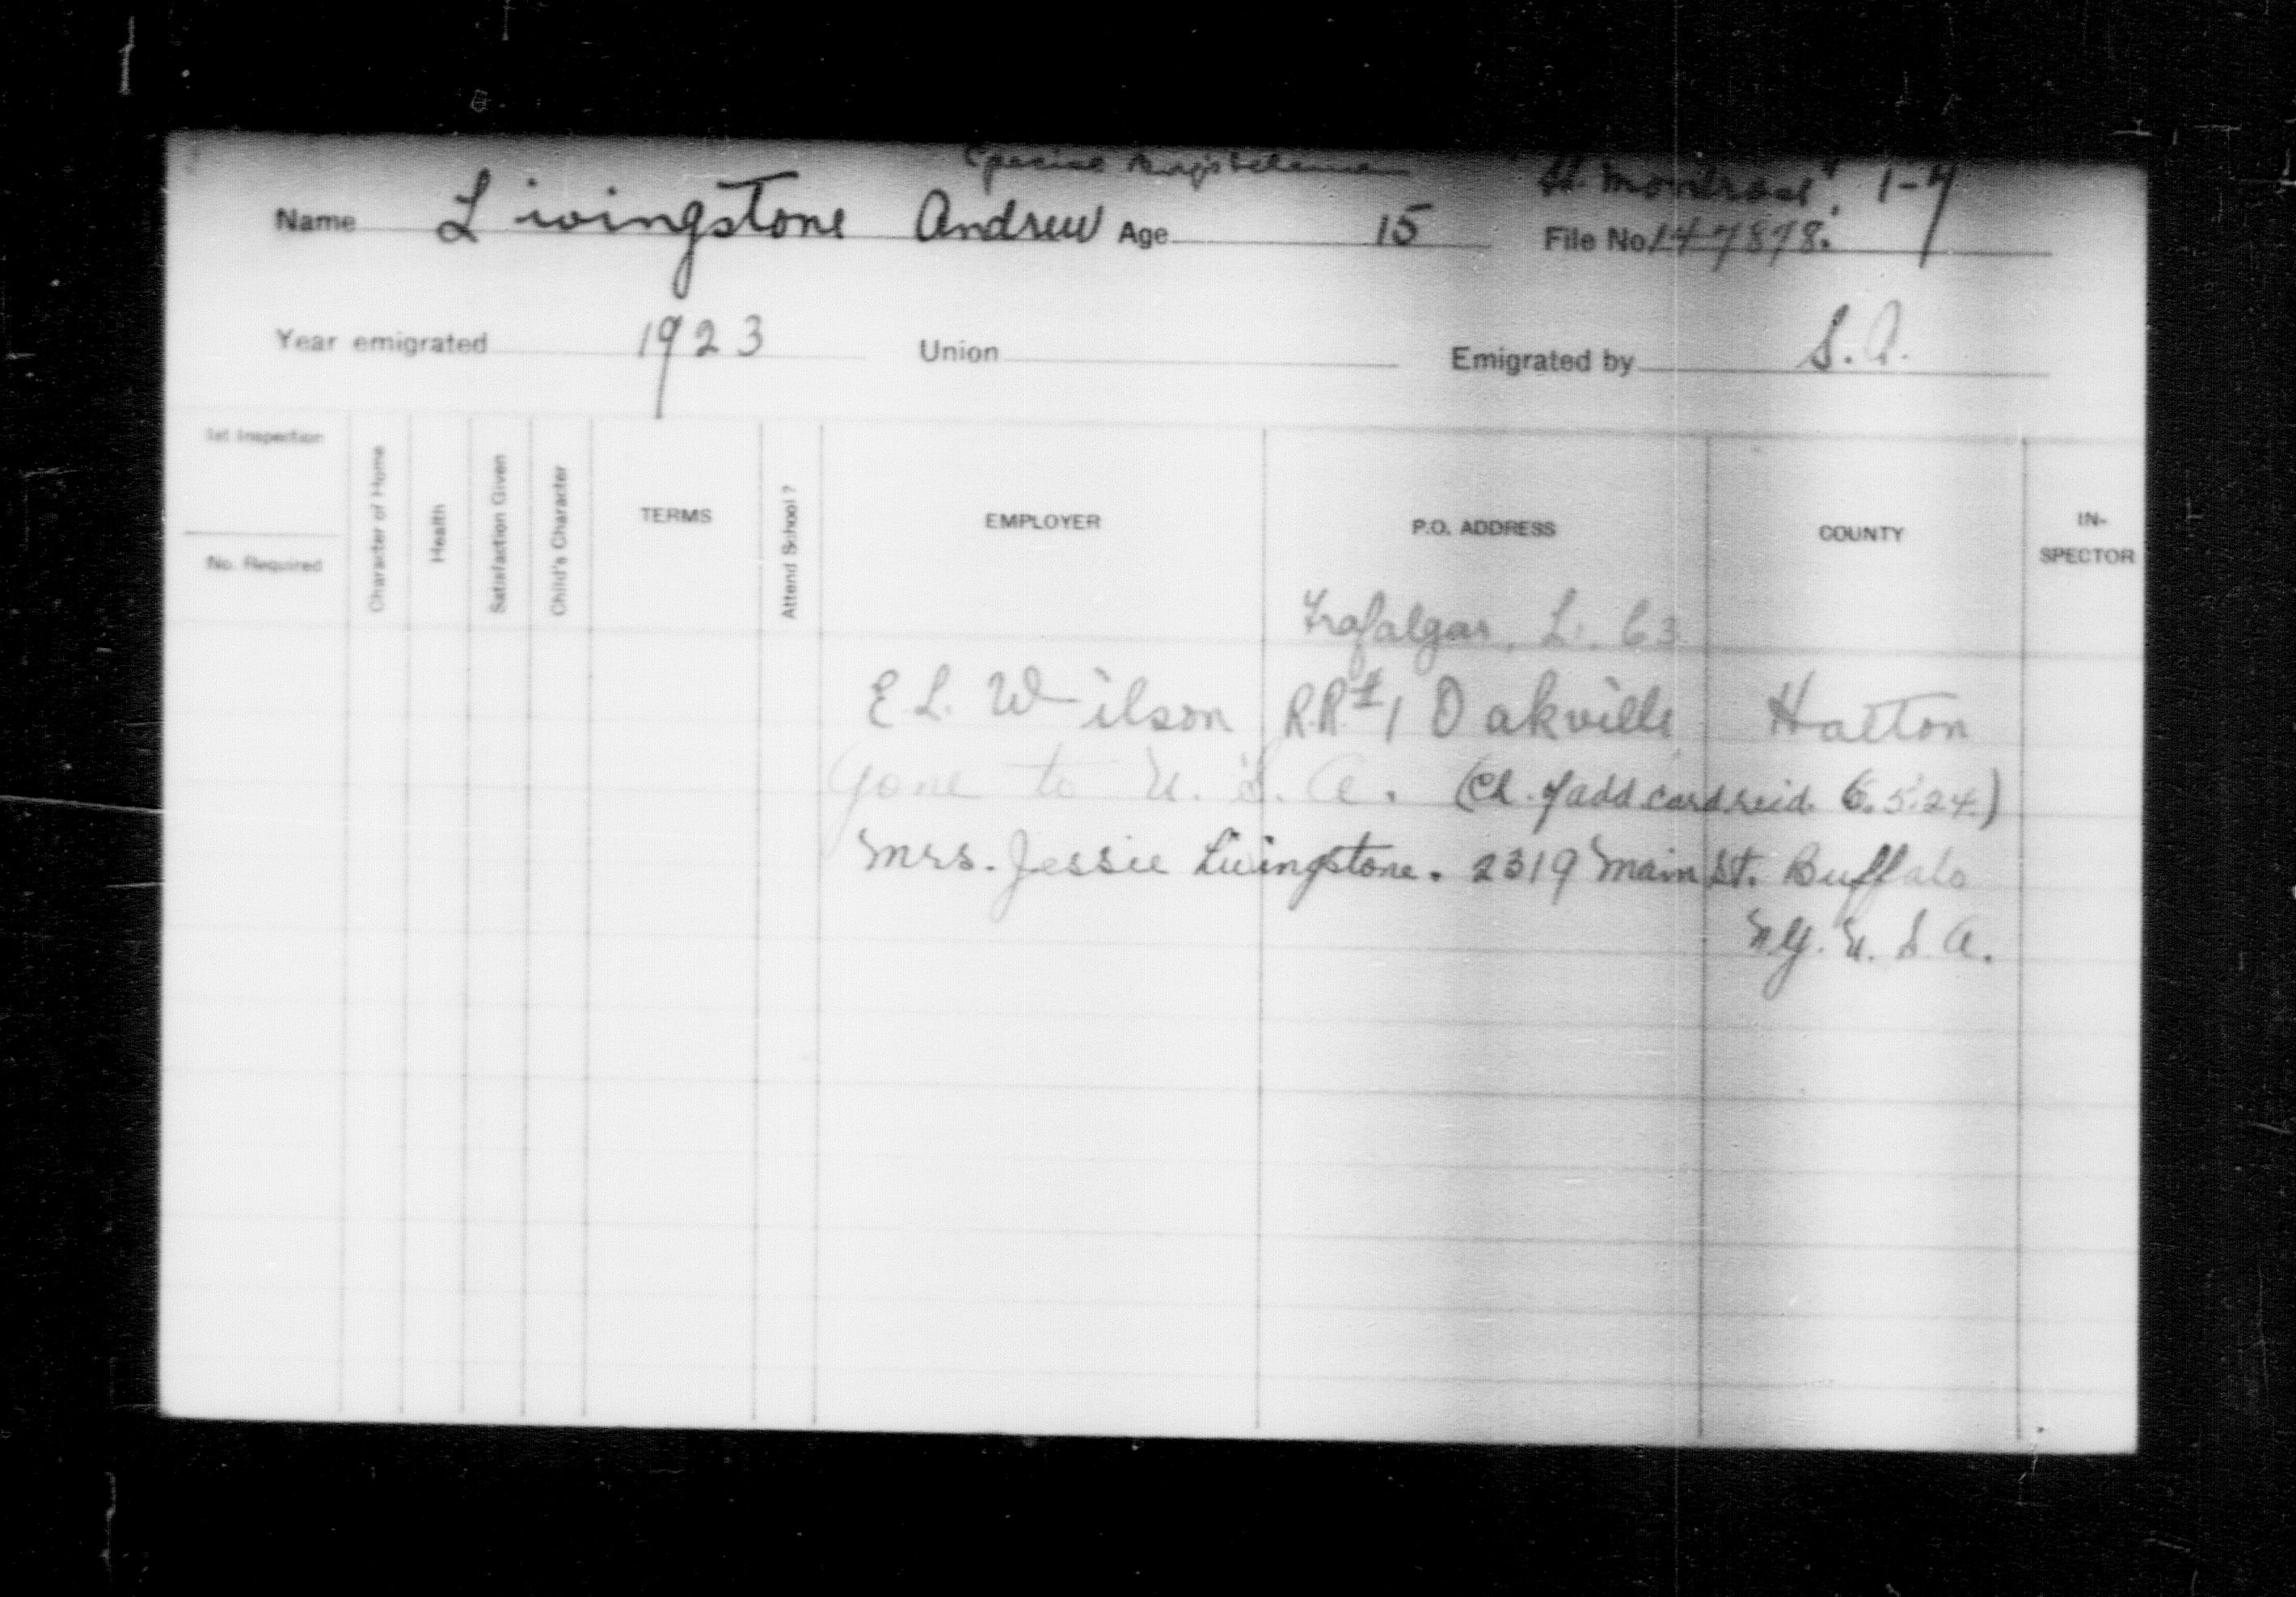 Special Boys Scheme "St. Montrose" 1-7
Name Livingstone Andrew Age 15 File No. 147878.
Year emigrated 1923 Union Emigrated by S.A.
1st Inspection
No. Required
Character of Home
Health
Satisfaction Given
Child's Character
TERMS
Attend School?
EMPLOYER
P.O. ADDRESS
COUNTY
IN-
SPECTOR
Trafalgar, L. C3
E L. Wilson R.R.#1 Oakville Halton
Gone to U. S. A. (Ch. of add. card reid. 6.5.24)
Mrs. Jessie Livingstone. 2319 Main St. Buffalo
N.Y. U. S. A.